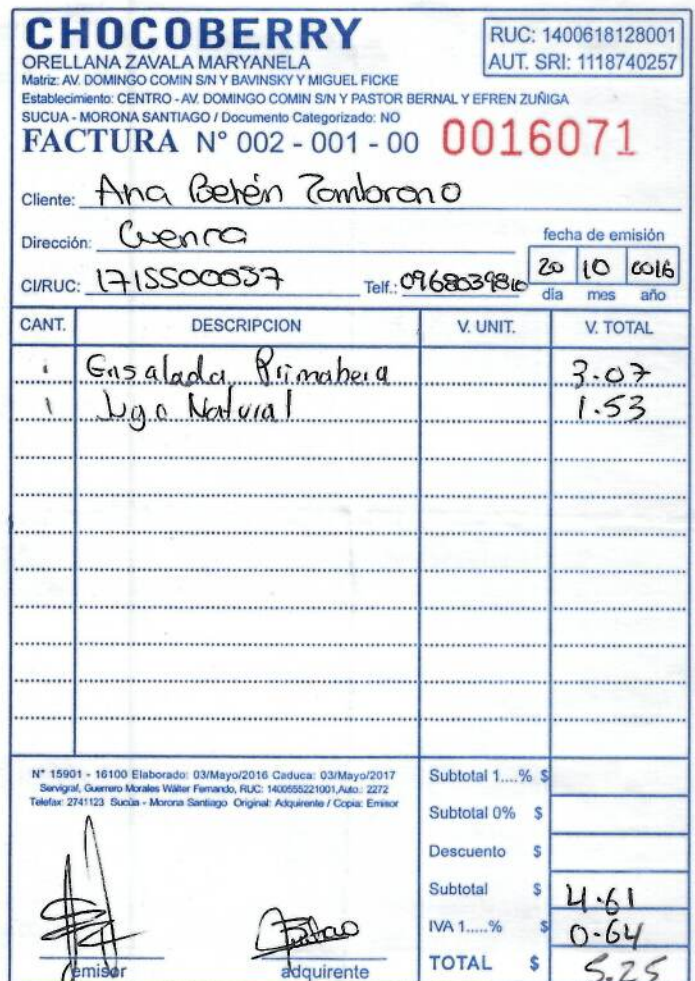 CHOCOBERRY
RUC: 1400618128001
AUT. SRI: 1118740257
ORELLANA ZAVALA MARYANELA
Matriz: AV. DOMINGO COMIN S/N Y BAVINSKY Y MIGUEL FICKE
Establecimiento: CENTRO - AV. DOMINGO COMIN S/N Y PASTOR BERNAL Y EFREN ZUÑIGA
SUCUA - MORONA SANTIAGO / Documento Categorizado: NO
FACTURA N° 002 - 001 - 00 0016071
Cliente: Ana Belén Zambrano
Dirección: Cuenca
fecha de emisión
CI/RUC: 1715500037 Telf.: 0968039810 20 10 0016
día mes año
CANT. DESCRIPCION V. UNIT. V. TOTAL
1 Ensalada Primabera 3.07
1 Jugo Natural 1.53
N° 15901 - 16100 Elaborado: 03/Mayo/2016 Caduca: 03/Mayo/2017
Servigraf, Guerrero Morales Wálter Fernando, RUC: 1400555221001, Auto.: 2272
Telefax: 2741123 Sucúa - Morona Santiago Original: Adquirente / Copia: Emisor
Subtotal 1....% $
Subtotal 0% $
Descuento $
Subtotal $ 4.61
IVA 1.....% $ 0.64
TOTAL $ 5.25
emisor adquirente